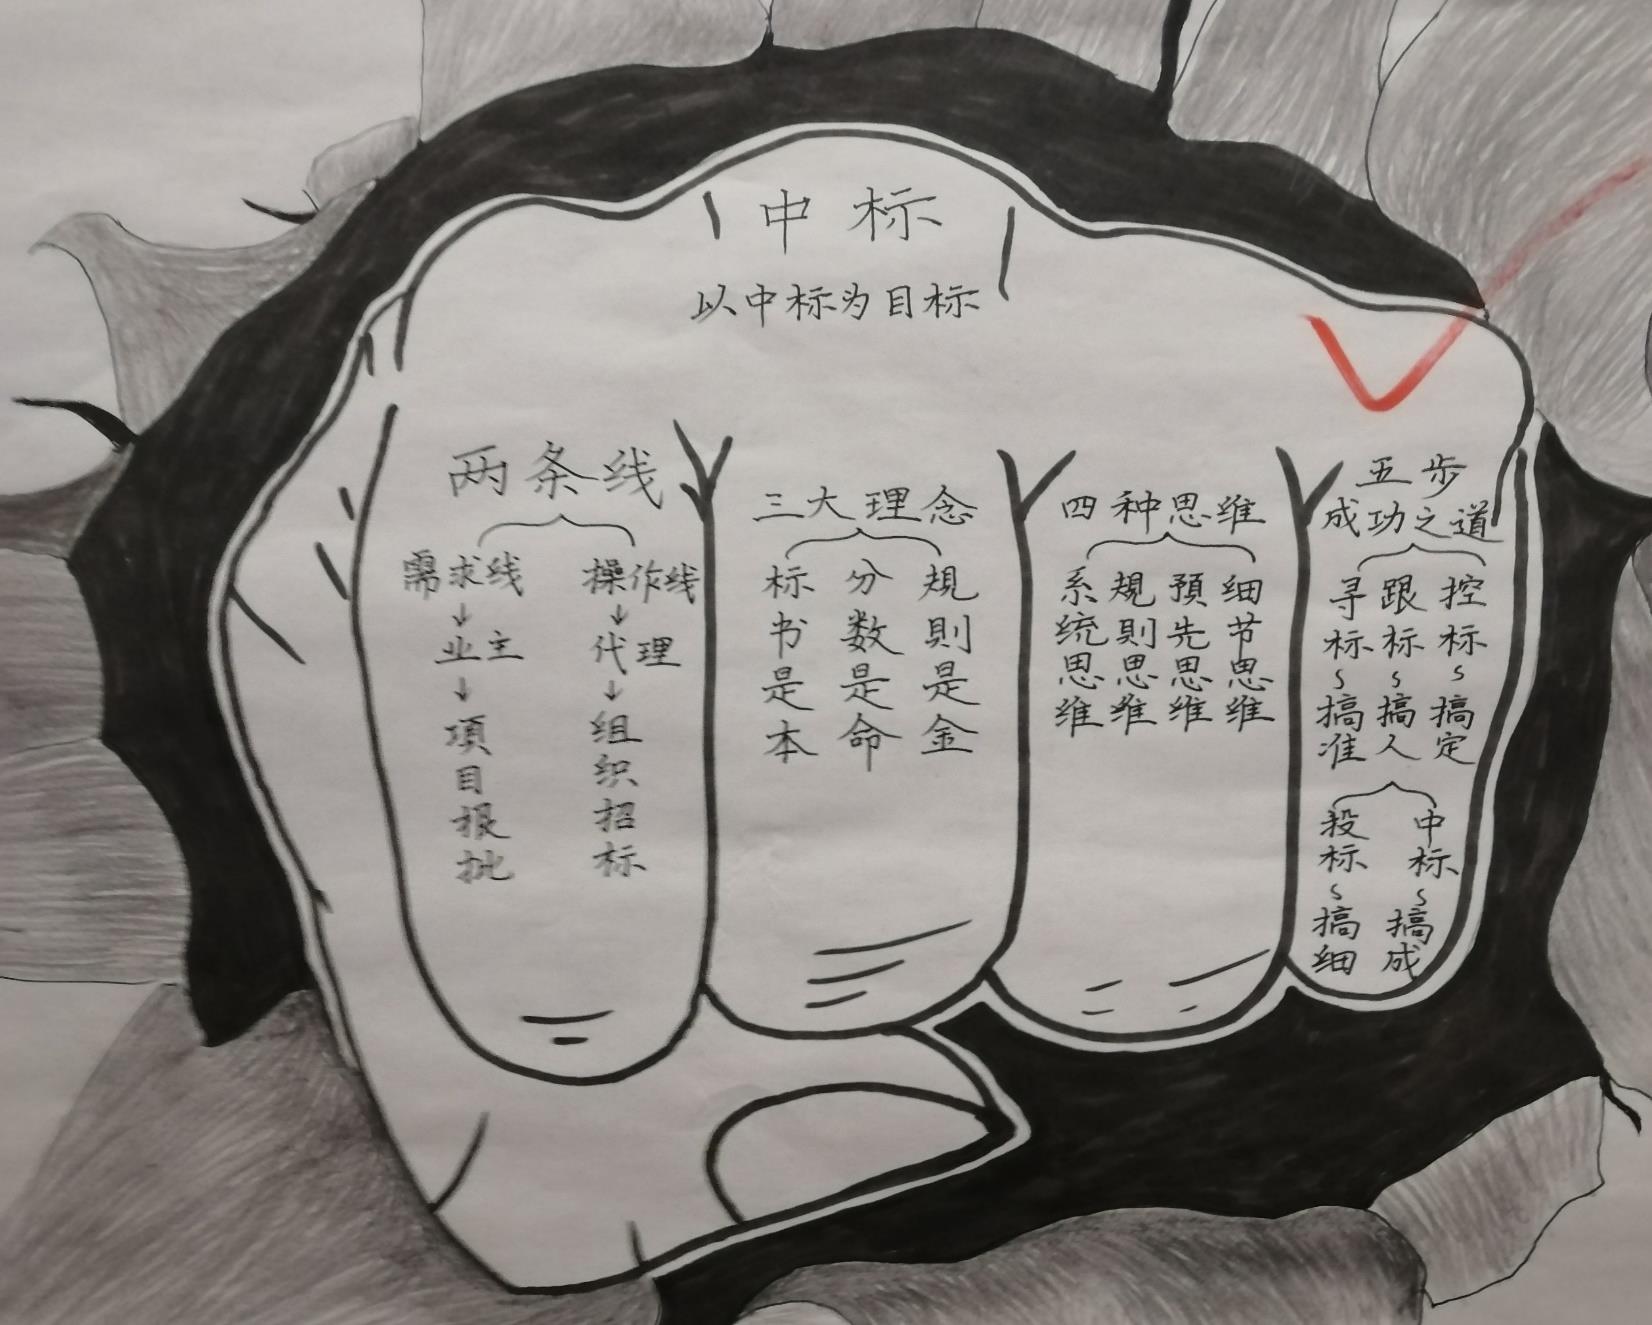 中标
以中标为目标
两条线
需求线
↓
业主
↓
項目报批
操作线
↓
代理
↓
组织招标
三大理念
标书是本
分数是命
規則是金
四种思维
系统思维
規則思维
預先思维
细节思维
五步
成功之道
寻标~搞准
跟标~搞人
控标~搞定
投标~搞细
中标~搞成